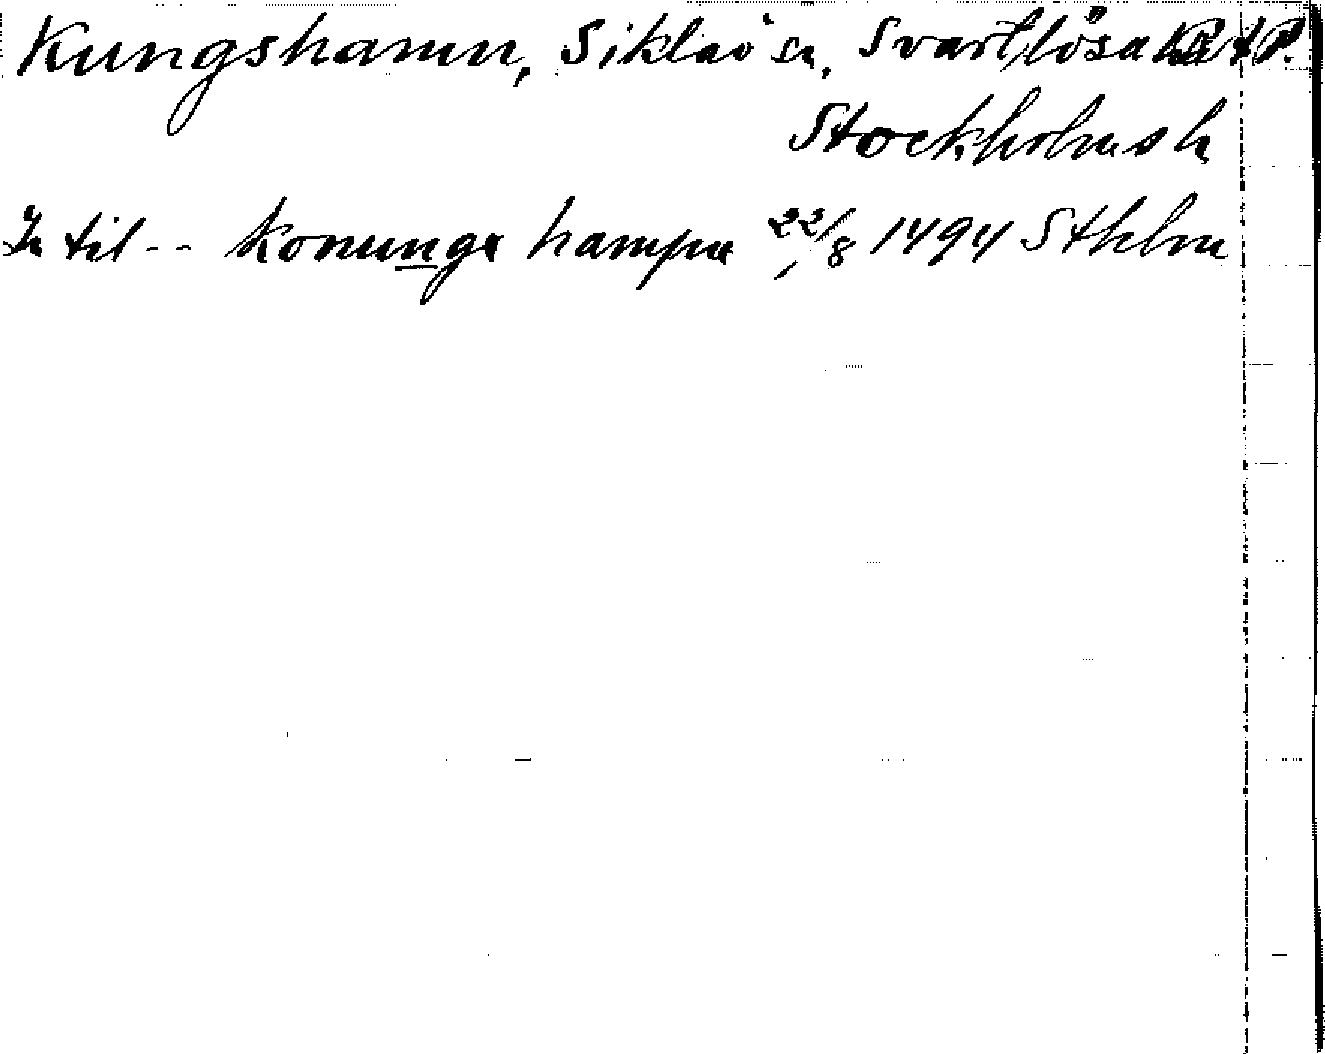 Kungshamn, Siklaö sn, Svartlösa hd
Stockholms l
In til -- konunga hampn 22/8 1494 Sthlm